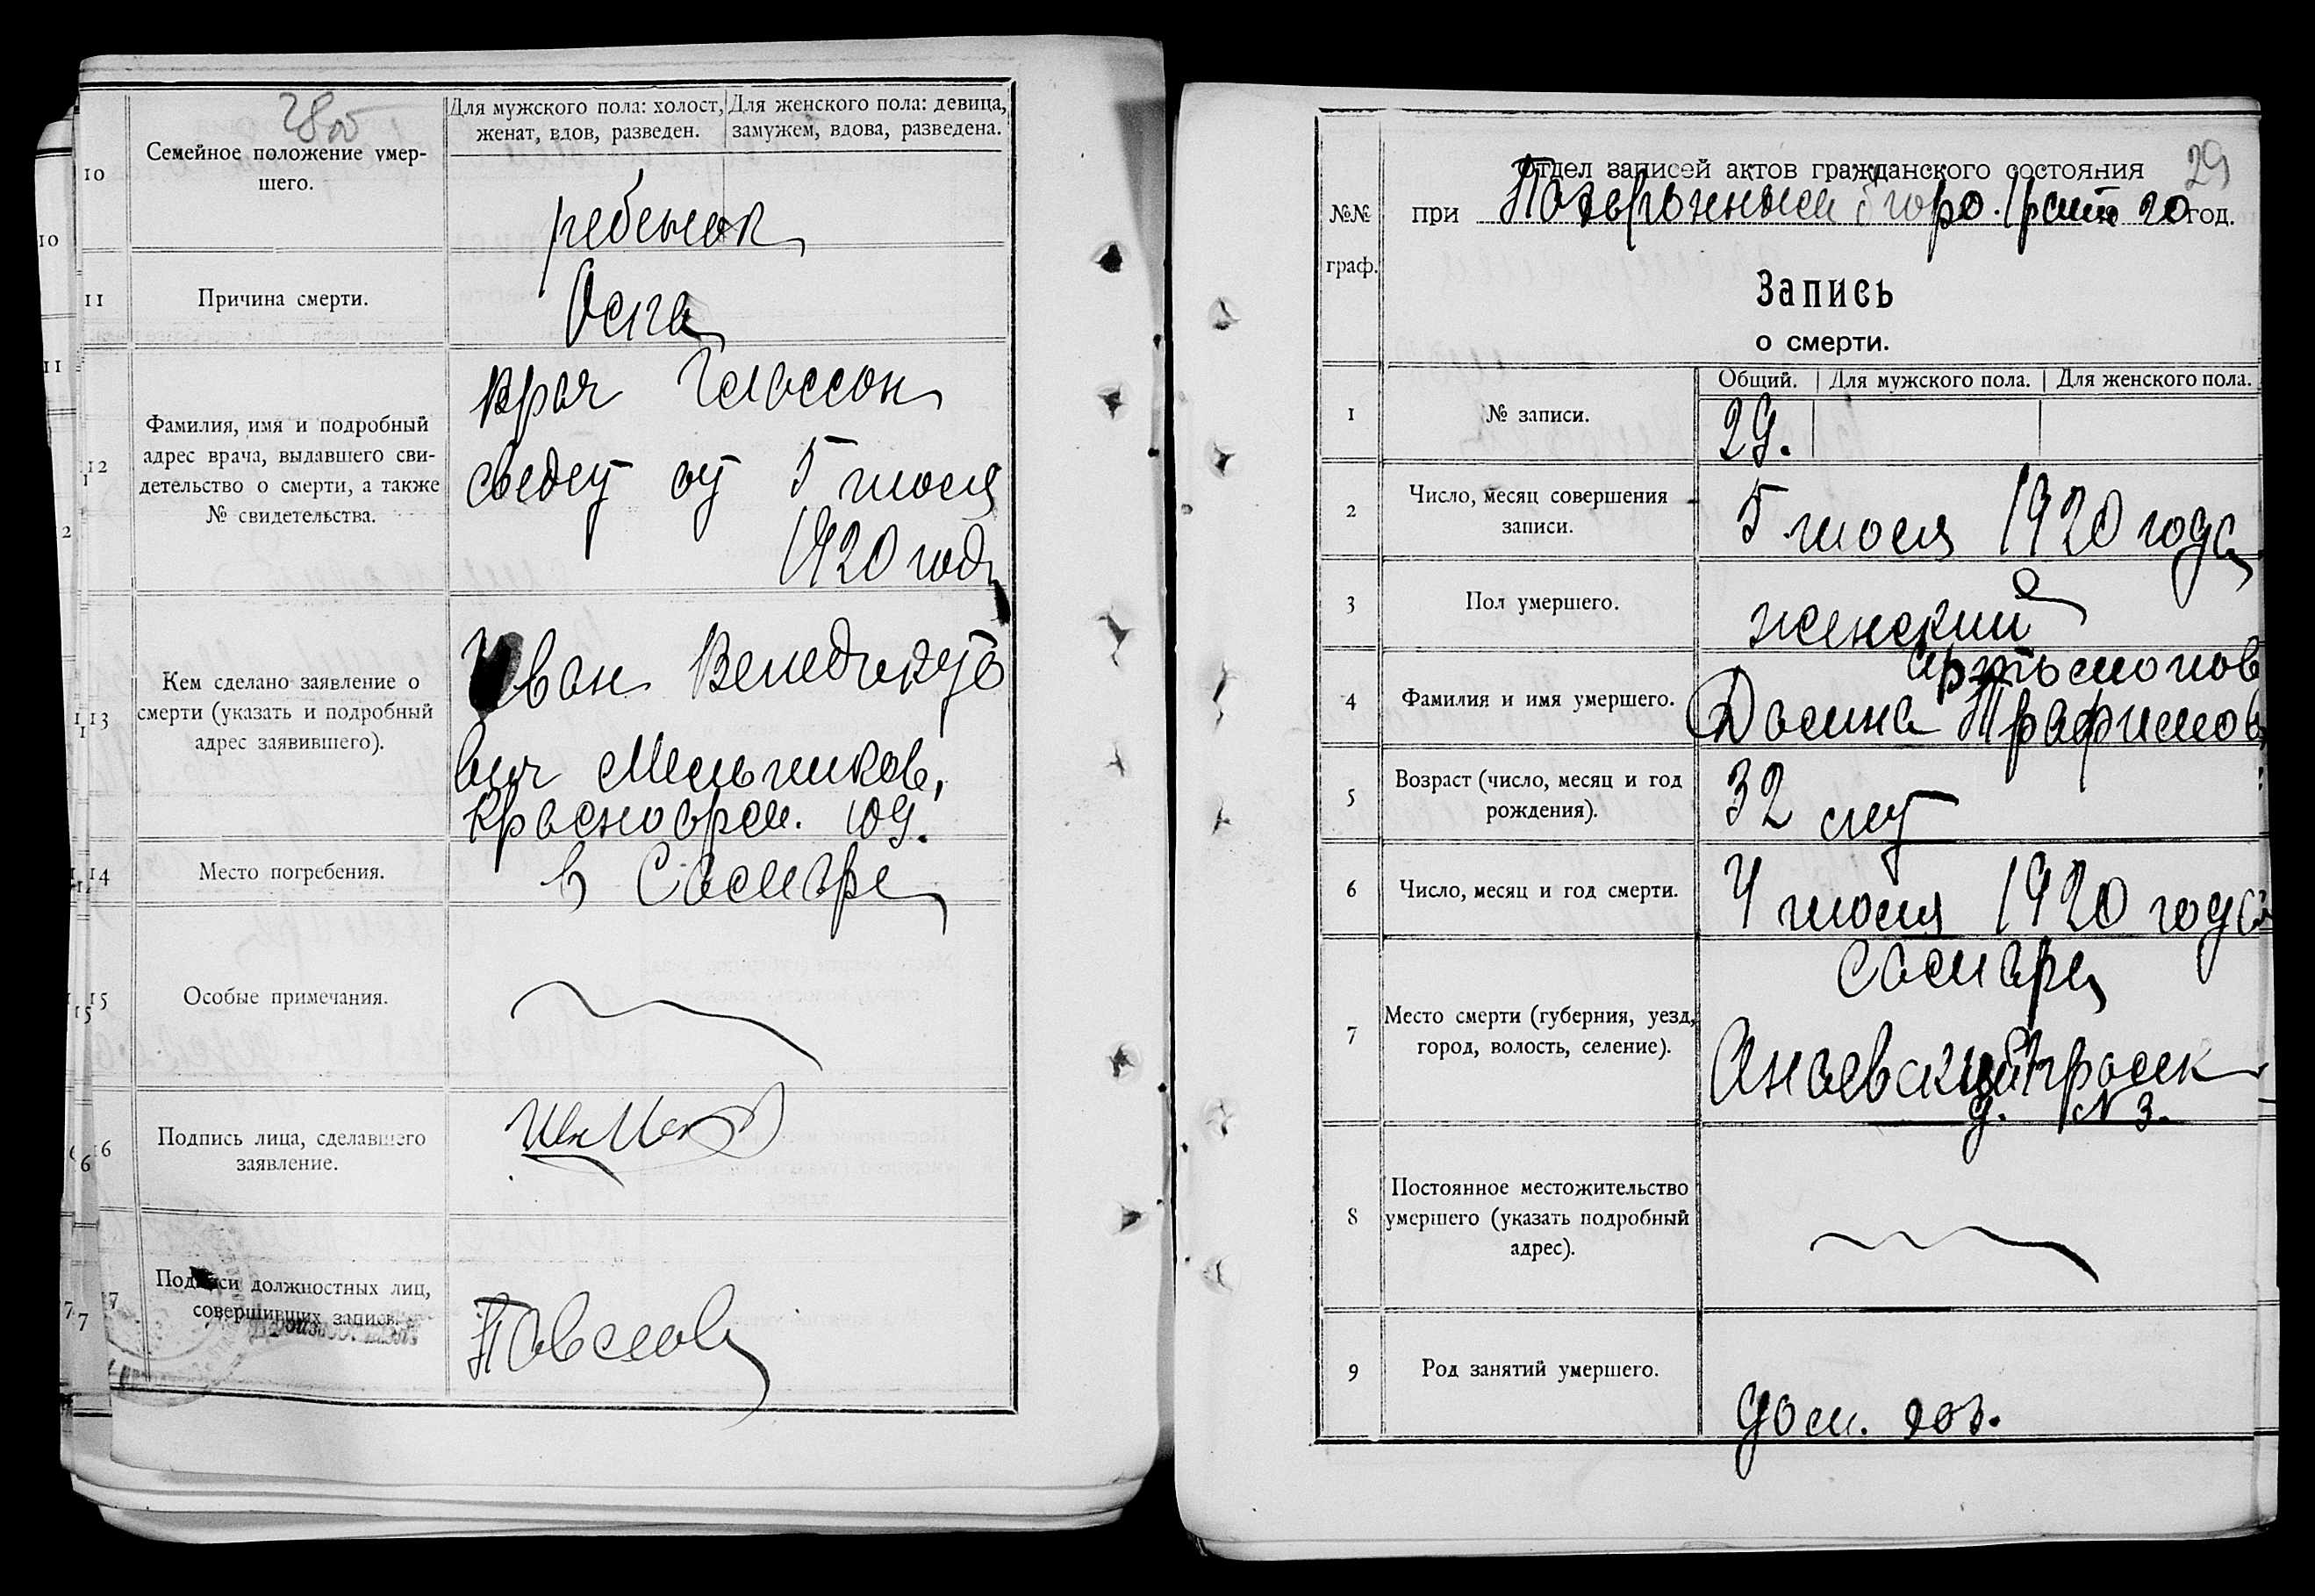 28об
10
Семейное положение умер-
шего.
Для мужского пола: холост,
женат, вдов, разведен.
Для женского пола: девица,
замужем, вдова, разведена.
ребенок
11
Причина смерти.
Оспа
12
Фамилия, имя и подробный
адрес врача, выдавшего сви-
детельство о смерти, а также
№ свидетельства.
врач
свидет от 5 июля
1920 года
13
Кем сделано заявление о
смерти (указать и подробный
адрес заявившего).
Иван Венедикто
вич Мельников,
Красноарм. 109.
14
Место погребения.
в Самаре
15
Особые примечания.
16
Подпись лица, сделавшего
заявление.
17
Подписи должностных лиц,
совершивших запись.
Павлов
29
Отдел записей актов гражданского состояния
№№
граф.
при Похоронном бюро. 20 год.
Запись
о смерти.
Общий.
Для мужского пола.
Для женского пола.
1
№ записи.
29.
2
Число, месяц совершения
записи.
5 июля 1920 года
3
Пол умершего.
женский
4
Фамилия и имя умершего.
Артамонов
Трафимов
5
Возраст (число, месяц и год
рождения).
32 лет
6
Число, месяц и год смерти.
4 июля 1920 года
7
Место смерти (губерния, уезд,
город, волость, селение).
Самара
д. № 3.
8
Постоянное местожительство
умершего (указать подробный
адрес).
9
Род занятий умершего.
дом. хоз.